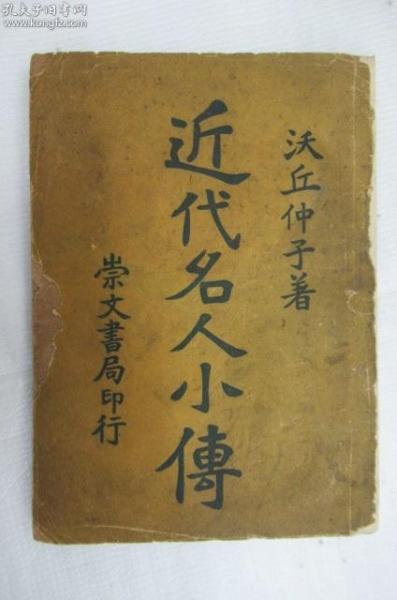 孔夫子旧书网
www.kongfz.com
沃丘仲子著
近代名人小傳
崇文書局印行